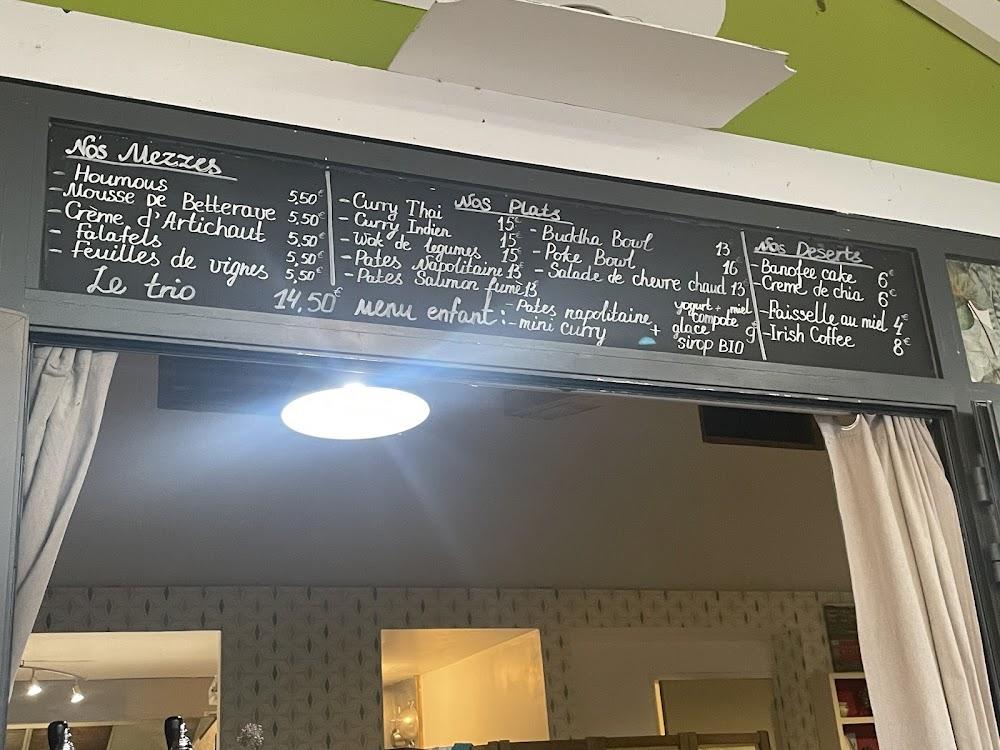 Nos Mezzes
- Houmous 5,50€
- Mousse de Betterave 5,50€
- Crème d'Artichaut 5,50€
- Falafels 5,50€
- Feuilles de vignes 5,50€
Le trio 14,50€
Nos Plats
- Curry Thai 15€
- Curry Indien 15€
- Wok de legumes 15€
- Pates Napolitaine 13€
- Pates Saumon fumé 13
- Buddha Bowl 13
- Poke Bowl 16
- Salade de chevre chaud 13
Menu enfant:
- Pates napolitaine
- mini curry
+ yogurt + miel
compote
glace
sirop BIO 9€
Nos Deserts
- Banofee cake 6€
- Creme de chia 6€
- Faisselle au miel 4€
- Irish Coffee 8€